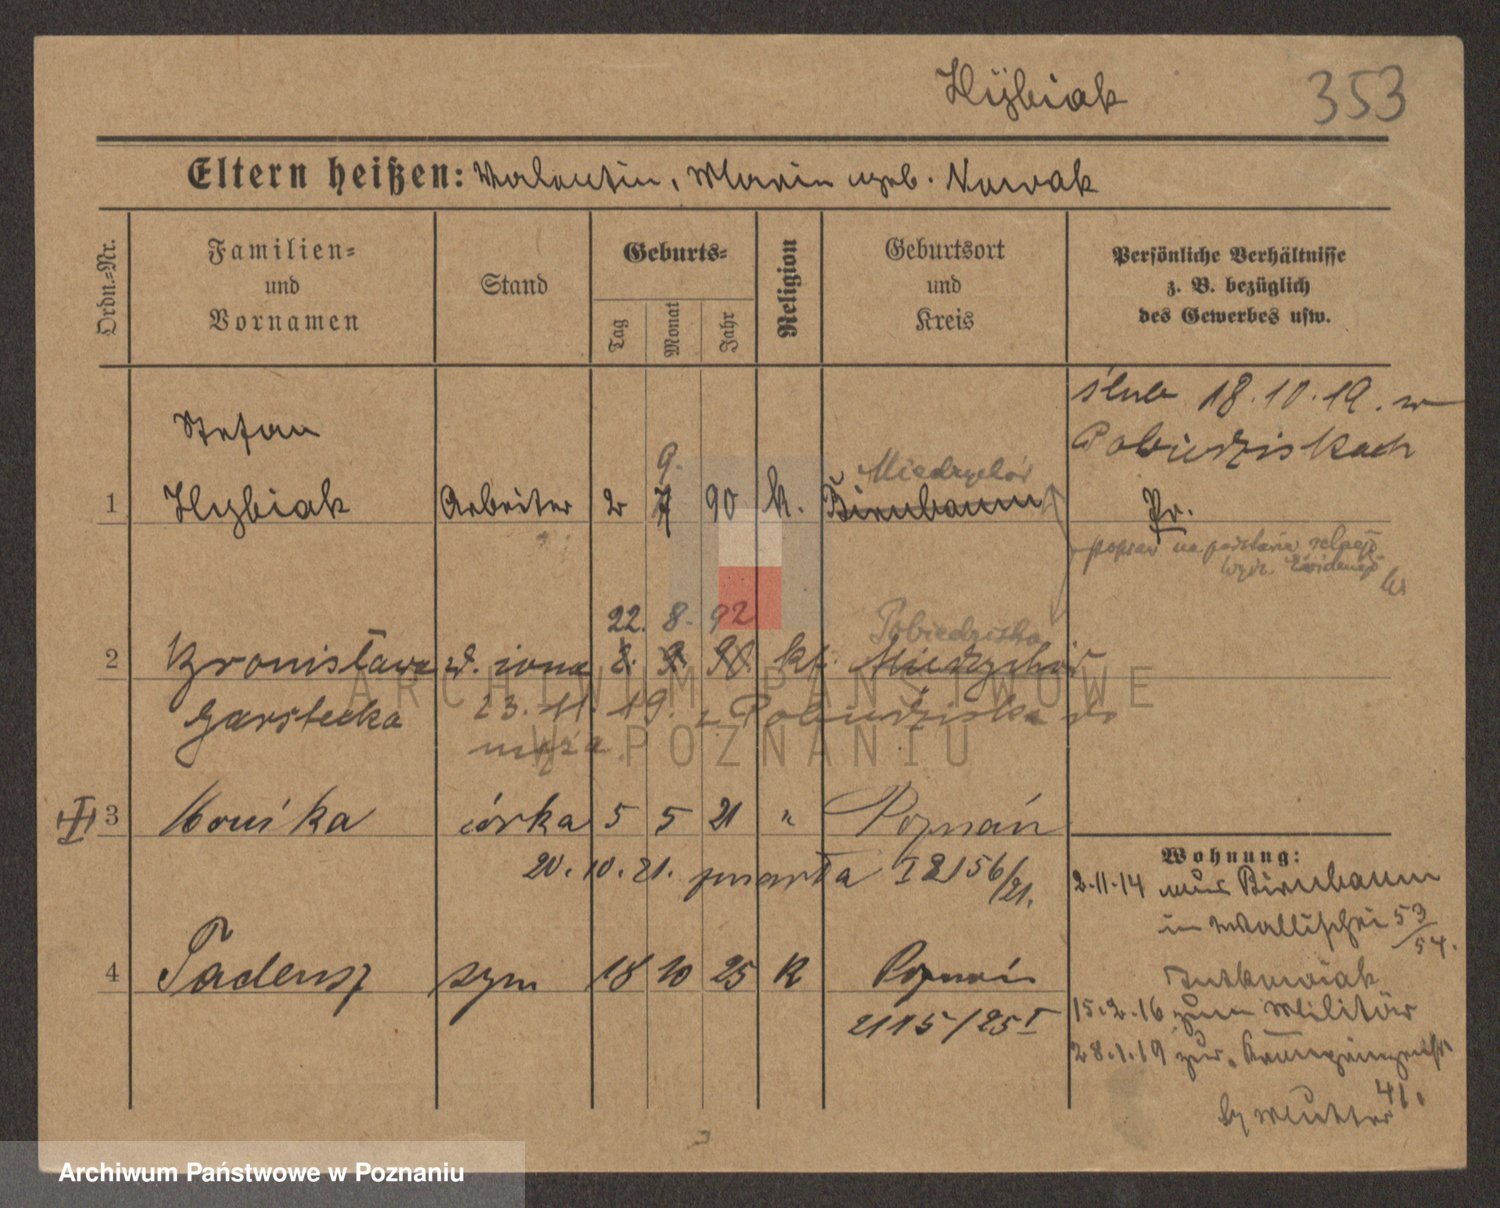 Hÿbiak 353
Eltern heißen: Valentin, Maria geb. Nowak
Ordn.-Nr.
Familien- und Vornamen
Stand
Geburts-
Tag
Monat
Jahr
Religion
Geburtsort und Kreis
Persönliche Verhältnisse
z. B. bezüglich
des Gewerbes usw.
ślub 18.10.19. w
Pobiedziskach
Stefan
9. Miedzychód
1 Hybiak Arbeiter 2 7 90 k. Birnbaum Pr.
popraw na podstawie relacji
22. 8. 92 Pobiedziska
2 Bronisława ż. żona 2. 9. 91. kt. Miedzychód
Garstecka 23.11.19. z Pobiedziska do
męża
3 Monika córka 5 5 21 " Poznań
20.10.21. zmarła I 2156/21.
4 Tadeusz syn 18 10 25 K Poznań
2115/25 I
Wohnung:
2.11.14 aus Birnbaum
in Wallischei 53/54.
15.2.16 zum Militär
28.1.19 zur.
41.
by Mutter
ARCHIWUM PAŃSTWOWE
W POZNANIU
Archiwum Państwowe w Poznaniu